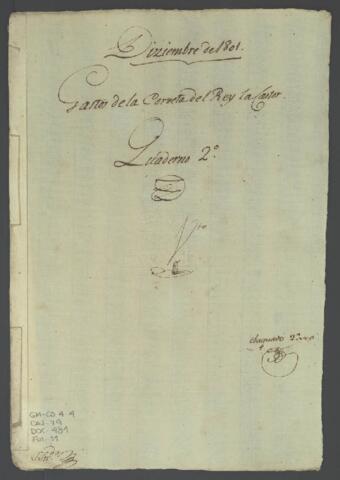 Diziembre de 1801.
Gastos de la Corveta del Rey la Castor.
Quaderno 2º
GM-CO 4 4
CAJ-79
DOC-481
Fol-11